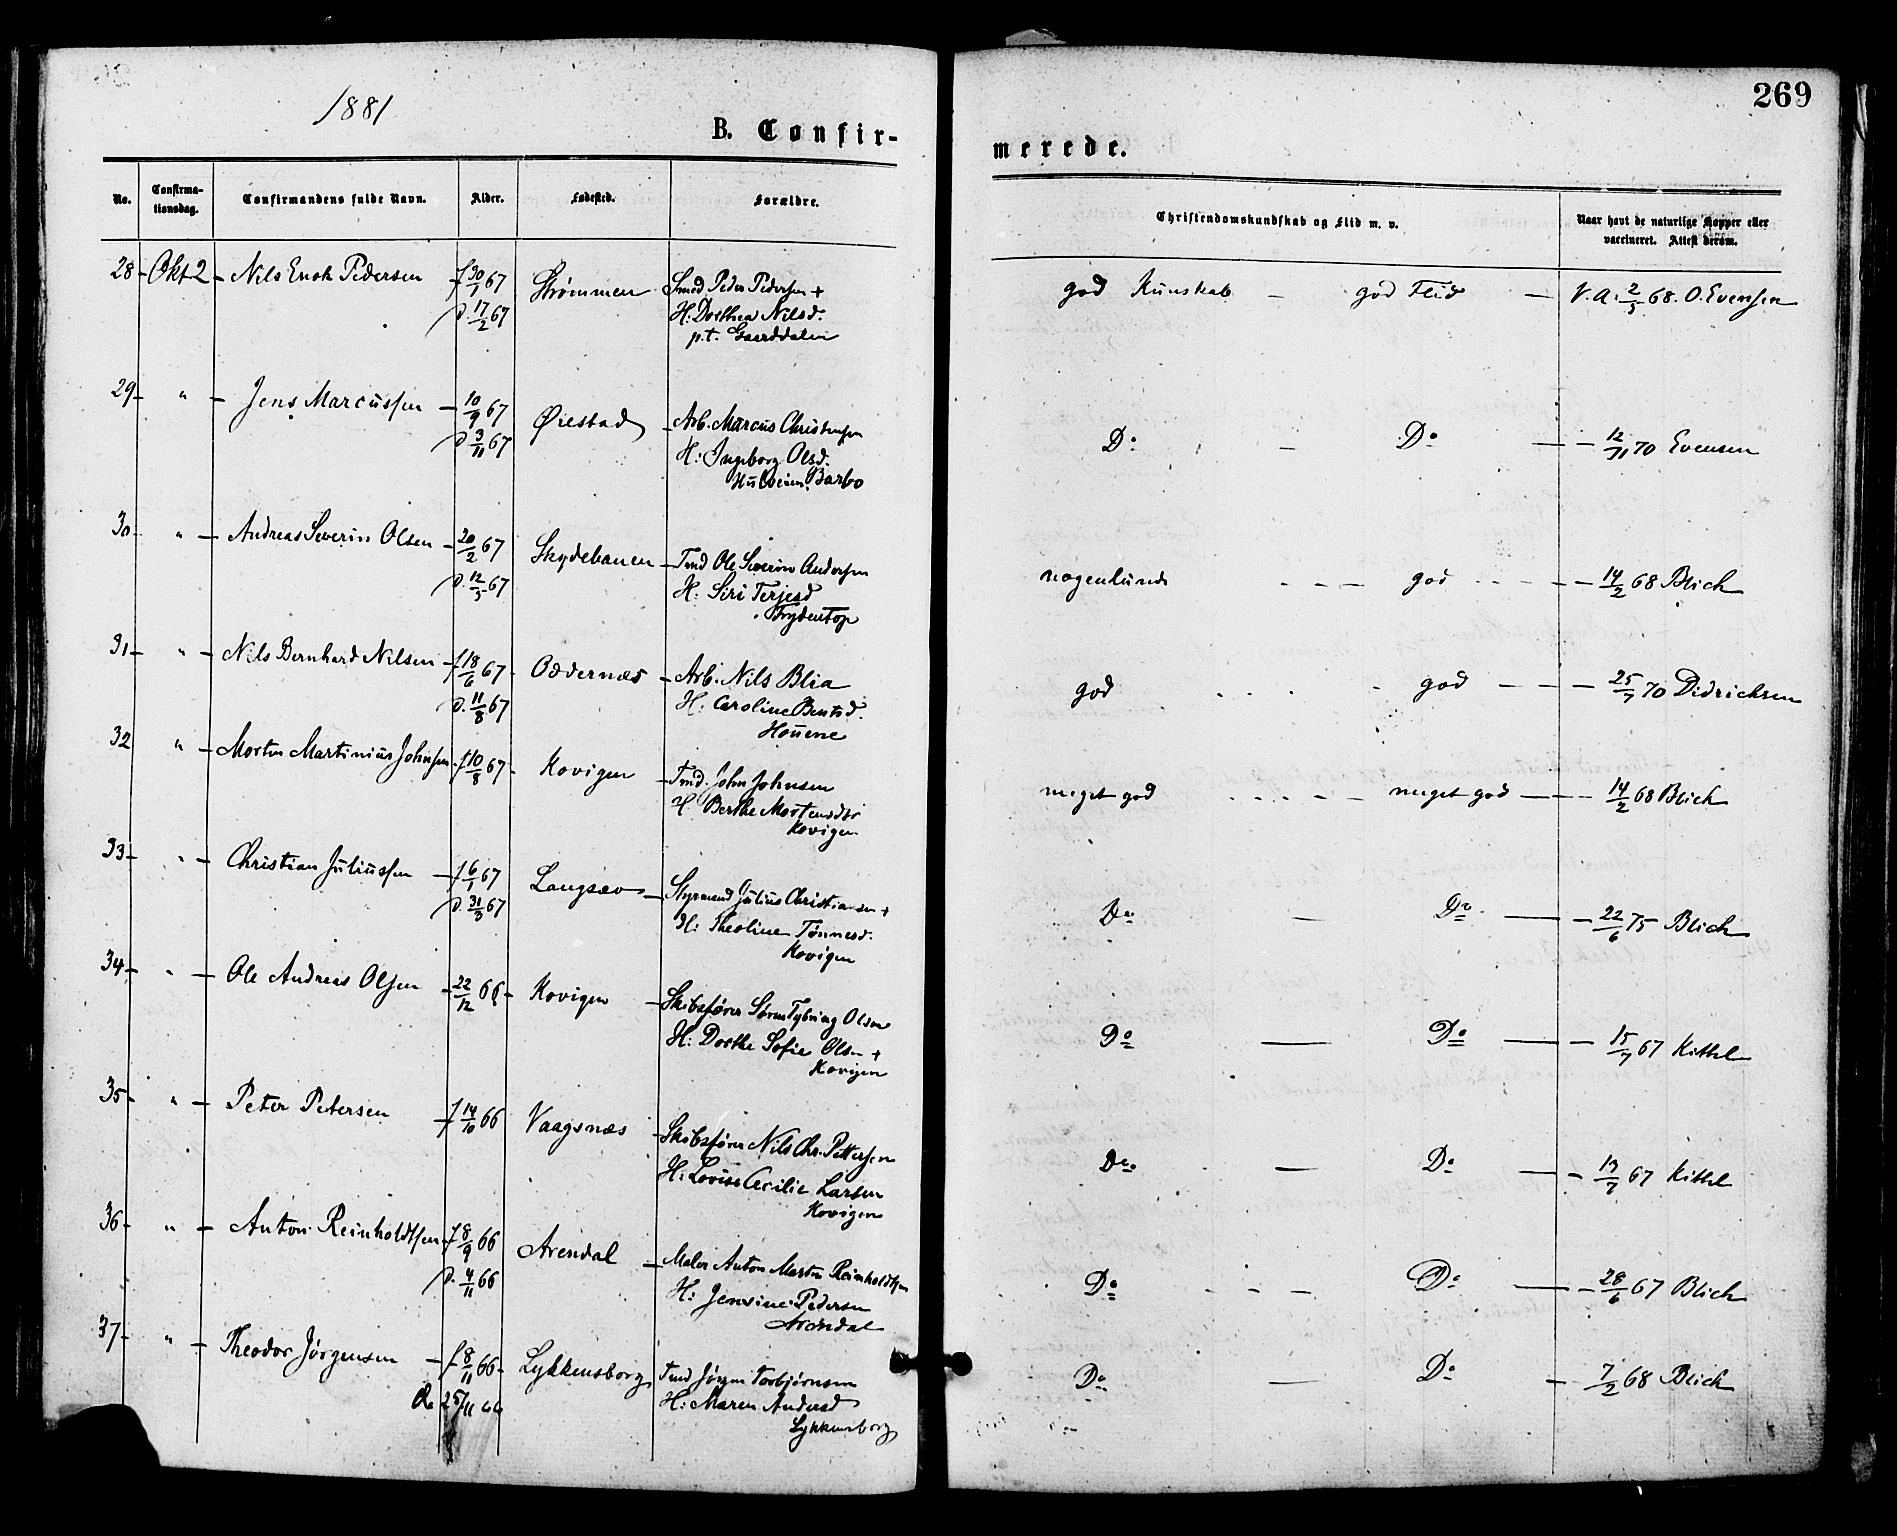 1881
269
B. Confir-
merede.
No. Confirma-tionsdag. Confirmandens fulde Navn. Alder. Fødested. Forældre. Christendomskundskab og Flid m. v. Naar havt de naturlige Kopper eller vaccineret. Attest derom.
28 - Okt 2 - Nils Enok Pedersen f 30/1 67 Strømmen Smed Peder Pedersen + god Kunskab - god Flid - V. A. 2/5 68. O. Evensen
D. 17/2 67 H: Dorthea Nilsd.
p.t. Gaarddalen
29 - " - Jens Marcussen - 10/9 67 Øiestad - Arb. Marcus Christensen Do - Do - - 12/11 70 Evensen
D. 3/11 67 H: Ingeborg Olsd.
Barbo
30 - " - Andreas Severin Olsen - 20/2 67 Skydebanen - Tmd Ole Severin Andersen nogenlunde - - - god - - - - 14/2 68 Blich
D. 12/5 67 H: Siri Terjesd
Frydentop
31 - " - Nils Bernhard Nilsen - f 18/6 67 - Oddernæs - Arb. Nils Blia god - god - - - 25/7 70 Didrichsen
D. 11/8 67 H: Caroline Bentsd.
Houene
32 " - Morten Martinius Johnsen - f 10/8 67 - Kovigen - Tmd. John Johnsen meget god - - - - meget god - - - 14/2 68 Blich
H Berthe Mortensdtr
Kovigen
33 - " - Christian Juliussen - f 6/1 67 Langsæv - Styrmand Julius Christiansen + Do - Do - - 22/6 75 Blich
D. 31/3 67 H: Theoline Tønnesd.
Kovigen
34 - " - Ole Andreas Olsen - 22/12 66 - Kovigen - Skibsfører Søren Tybring Olsen Do - Do - - 15/7 67 Kittel
H: Dorthe Sofie Olsen +
Kovigen
35 - " - Peter Petersen - f 14/10 66 Vaagsnæs - Skibsfører Nils Chr. Pettersen Do - Do - - 13/7 67 Kittel
H: Lovise Cecilie Larsen
Kovigen
36 - " - Anton Reinholdtsen - f 8/9 66 Arendal - Maler Anton Martin Reinholdtsen Do - - - Do - - 28/6 67 Blich
D. 4/11 66 H: Jensine Pedersen
Arendal
37 - " - Theodor Jørgensen - f 8/11 66 - Lykkensborg Tmd Jørgen Torbjørnsen Do - Do - 7/2 68 Blich
D. 25/11 66 H: Maren Andersd
Lykkensborg